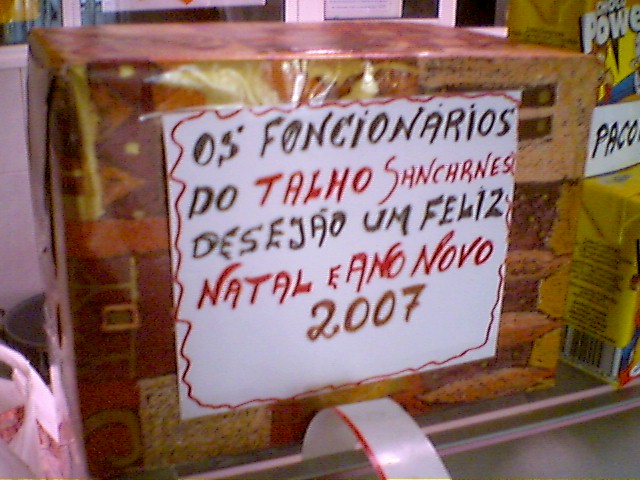 OS FONCIONÁRIOS
DO TALHO SANCARNES
DESEJÃO UM FELIZ
NATAL E ANO NOVO
2007
POW
PACO